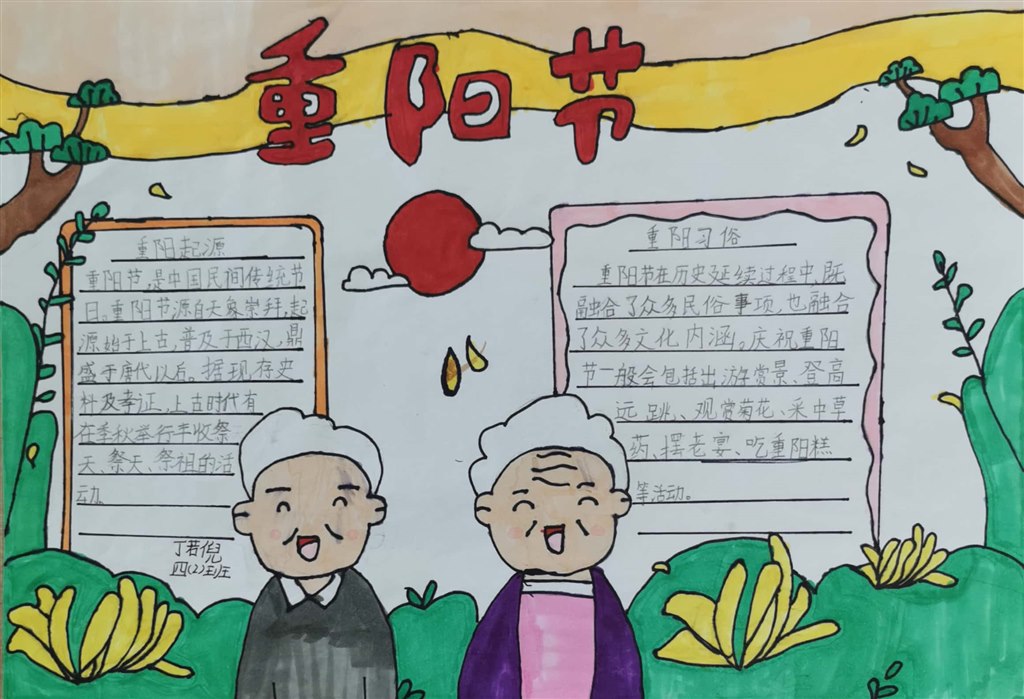 重阳节
重阳起源
重阳节,是中国民间传统节
日。重阳节源自天象崇拜,起
源始于上古,普及于西汉,鼎
盛于唐代以后。据现存史
料及孝证,上古时代有
在季秋举行丰收祭
天、祭天、祭祖的活
动。
丁若倪
四(2)班
重阳习俗
重阳节在历史延续过程中,既
融合了众多民俗事项,也融合
了众多文化内涵。庆祝重阳
节一般会包括出游赏景、登高
远跳、观赏菊花、采中草
药、摆老宴、吃重阳糕
等活动。